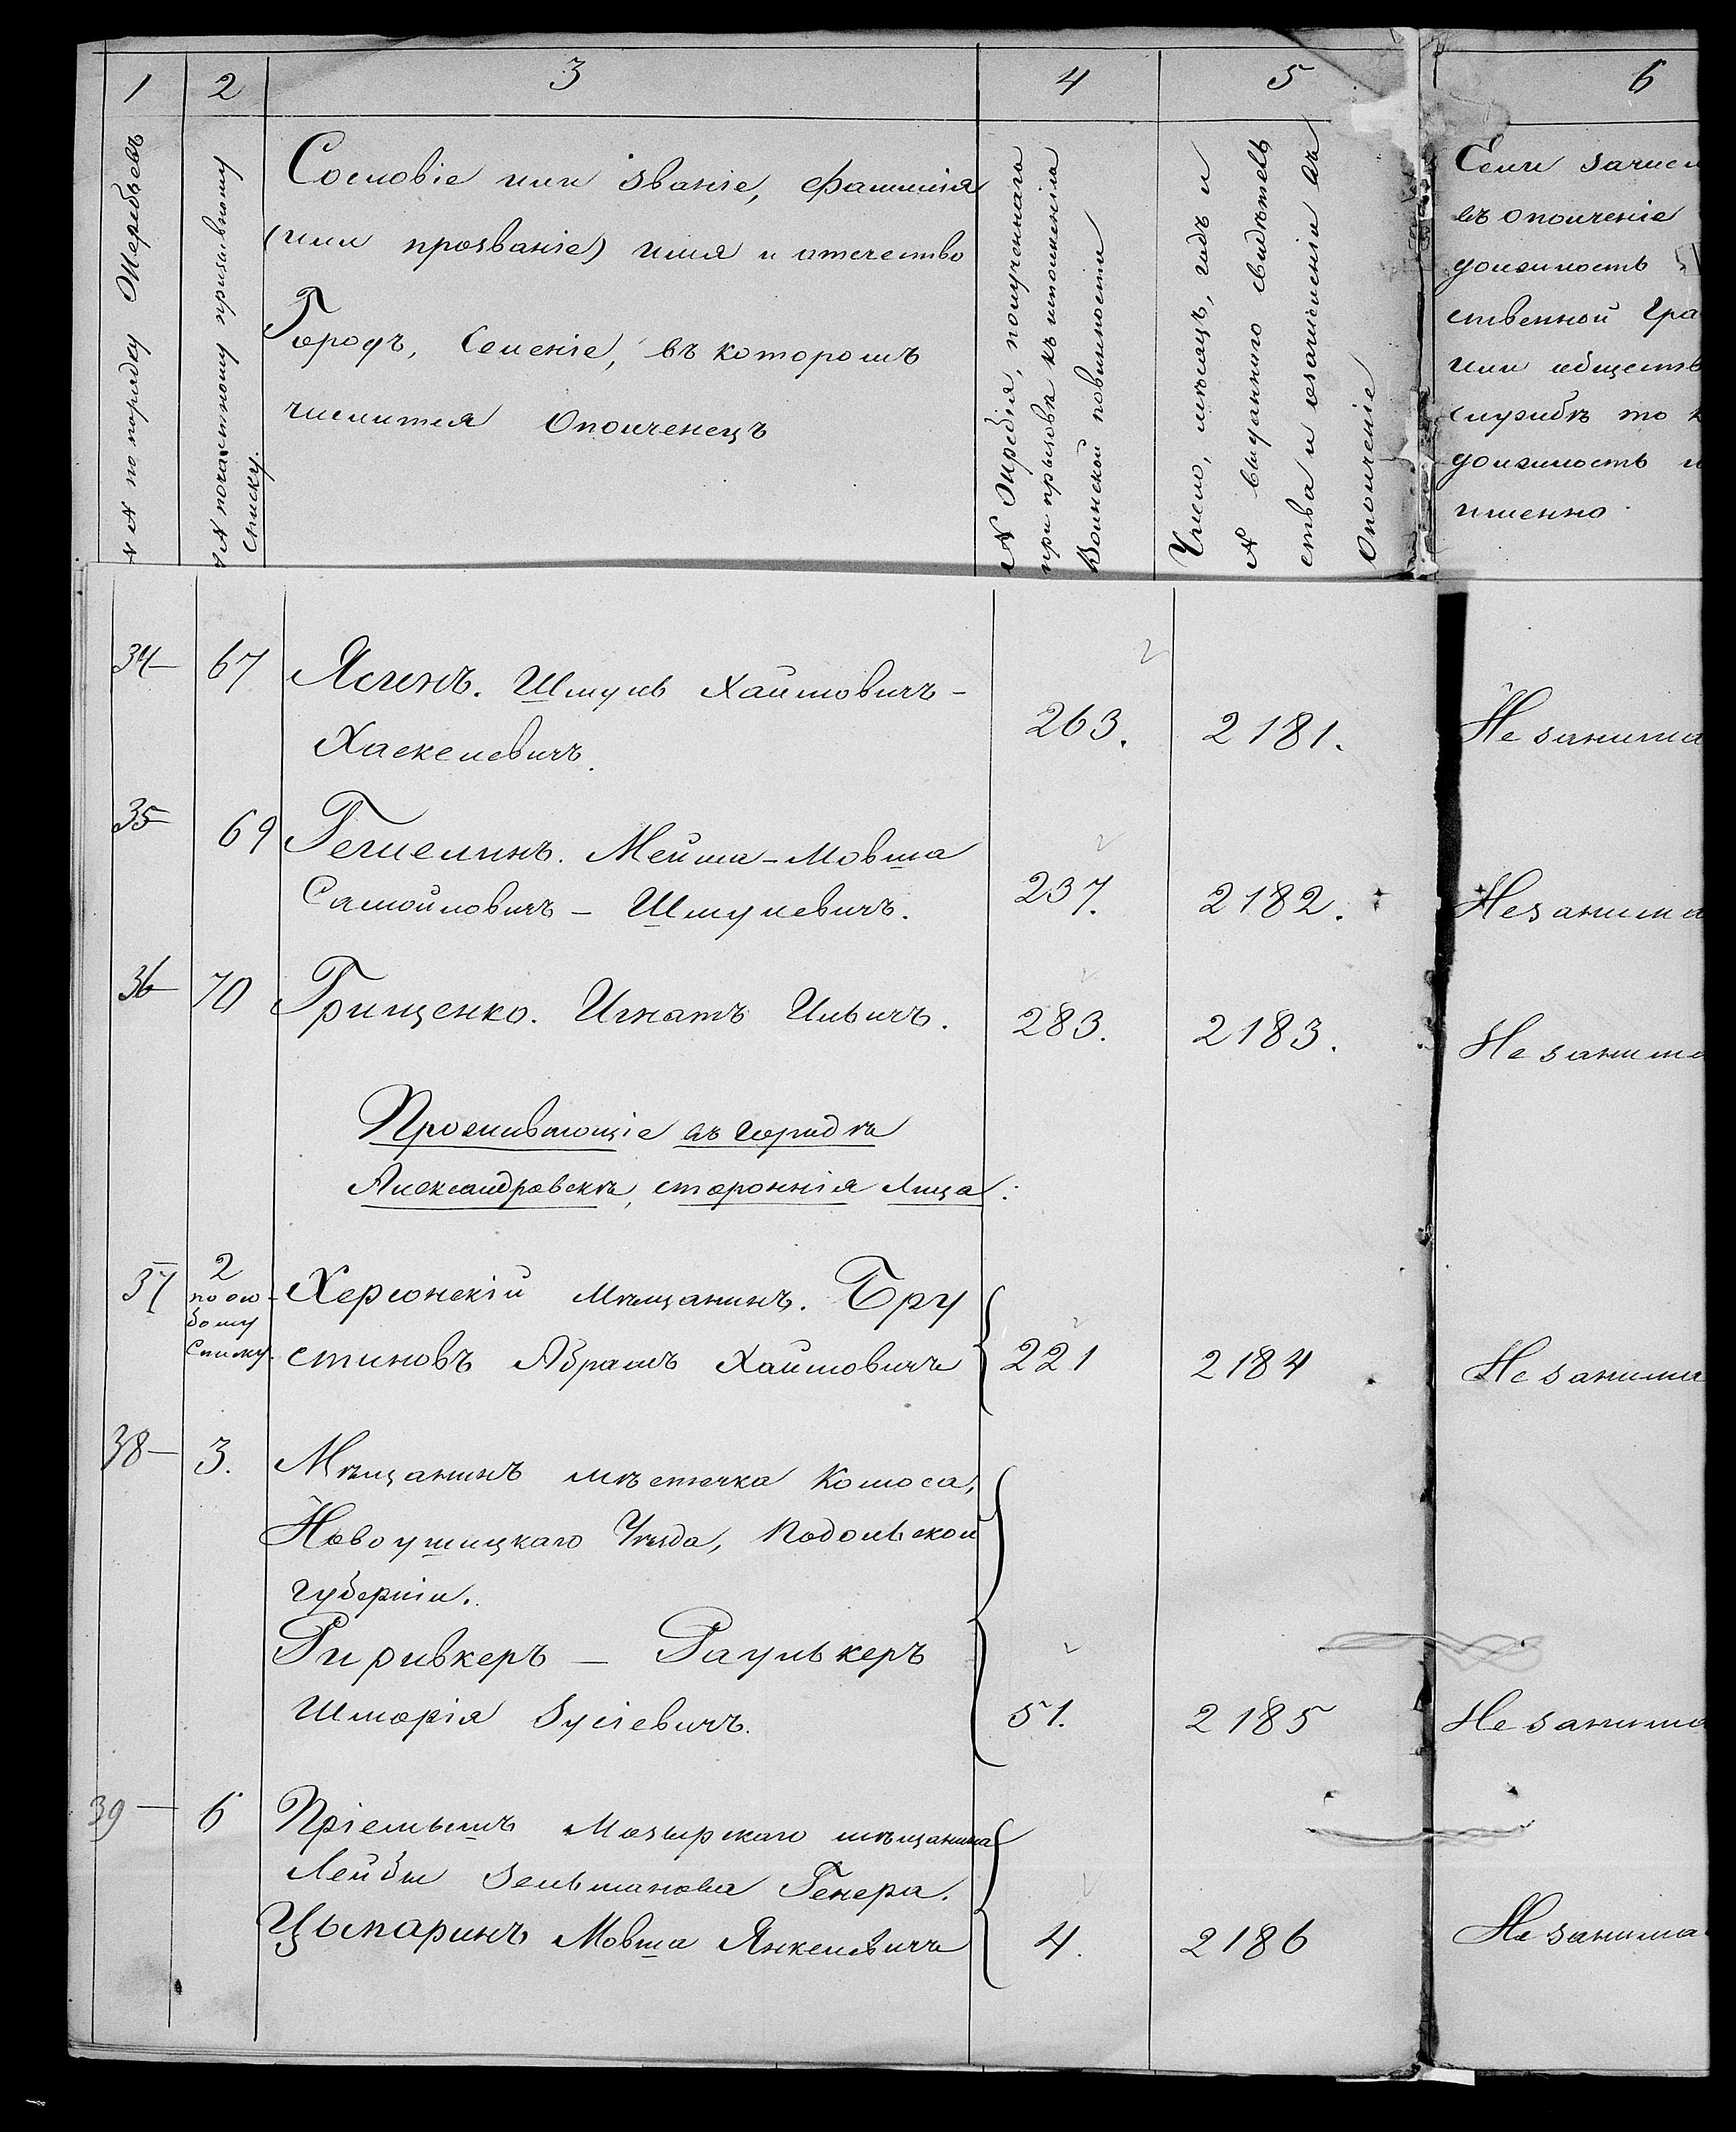 1 2 3 4 5 6
№№ по порядку Жеребьевъ
№№ по частному призывному
списку.
Сословіе или званіе, фамилія
(или прозваніе) имя и отчество
Городъ, Селеніе, въ которомъ
числится Ополченецъ
№ Жребія, полученнаго
при призывѣ къ исполненію
Воинской повинности
Число, мѣсяцъ, годъ и
№ выданнаго свидѣтель
ства о зачисленіи въ
Ополченіе
Если зачисл
въ ополченіе
должность
ственной Гра
или обществ
службѣ то к
должность и
именно
34 67 Ясинъ. Шмуль Хаимовичъ-
Хаскелевичъ. 263. 2181. Не занима
35 69 Гегиелинъ. Мейша-Мовша
Самойловичъ - Шмулевичъ. 237. 2182. Не занима
36 70 Грищенко. Игнатъ Ильичъ. 283. 2183. Не занима
Проживающіе въ городѣ
Александровскѣ, стороннія лица:
37 2 Херсонскій мѣщанинъ. Бру
по осо-
бому
списку. стиновъ Абрамъ Хаимовичъ 221 2184 Не занима
38 3. Мѣщанинъ мѣстечка
Новоушицкаго Уѣзда, Подольской
губерніи.
Рауль керъ
Шмарія Зусіевичъ. 51. 2185 Не занима
39 6 Пріемышъ Мозырскаго мѣщанина
Лейбы Зельманова Генера.
Цыпаринъ Мовша Янкелевичъ 4. 2186 Не занима